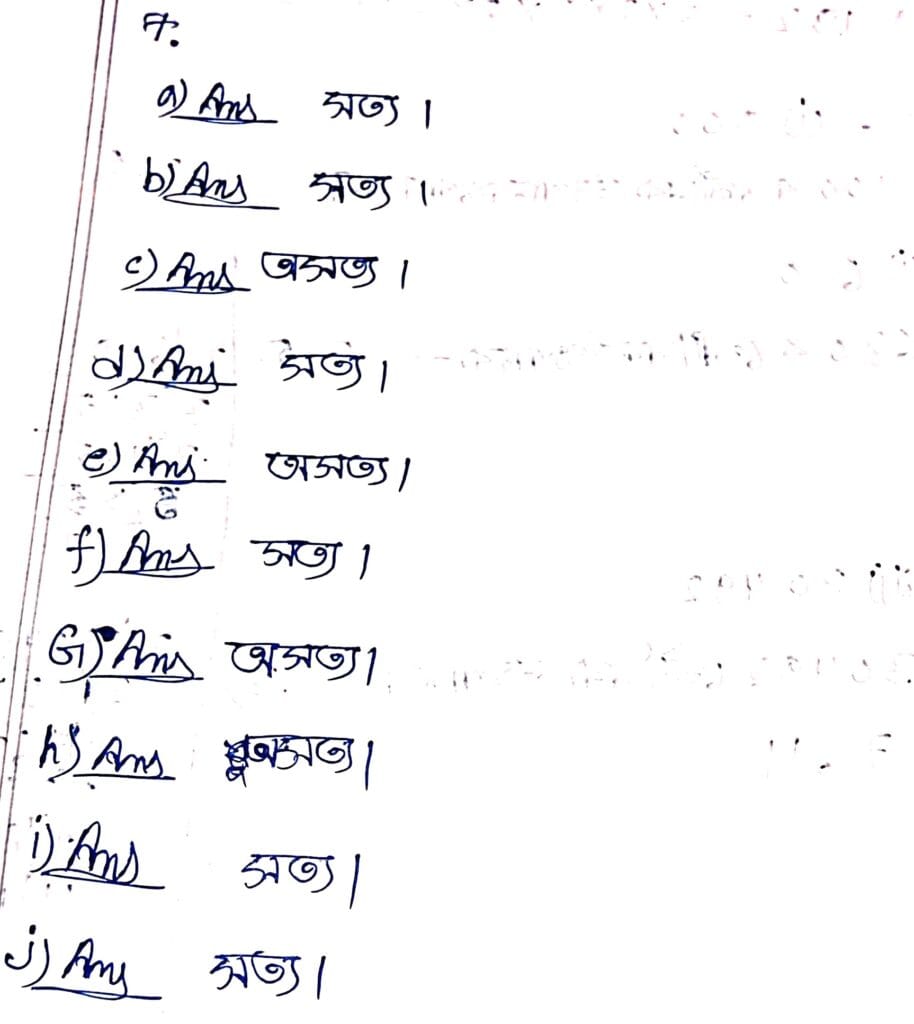 a) Ans সত্য।
b) Ans সত্য।
c) Ans অসত্য।
d) Ans সত্য।
e) Ans অসত্য।
f) Ans সত্য।
G) Ans অসত্য।
h) Ans অসত্য।
i) Ans সত্য।
j) Ans সত্য।